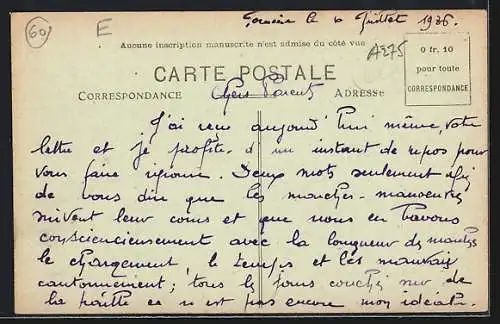 le 6 Juillet 1936.
60
E
Aucune inscription manuscrite n'est admise du côté vue
A275
0 fr. 10
pour toute
CORRESPONDANCE
CARTE POSTALE
CORRESPONDANCE
Chers Parents
ADRESSE
J'ai reçu aujourd'hui même, votre
lettre et je profite d'un instant de repos pour
vous faire réponse. Deux mots seulement afin
de vous dire que les marches-manoeuvres
suivent leur cours et que nous en bavons
consciencieusement avec la longueur des marches
le chargement, le temps et les mauvais
cantonnement; tous les jours coucher sur de
la paille ce n'est pas encore mon idéal.